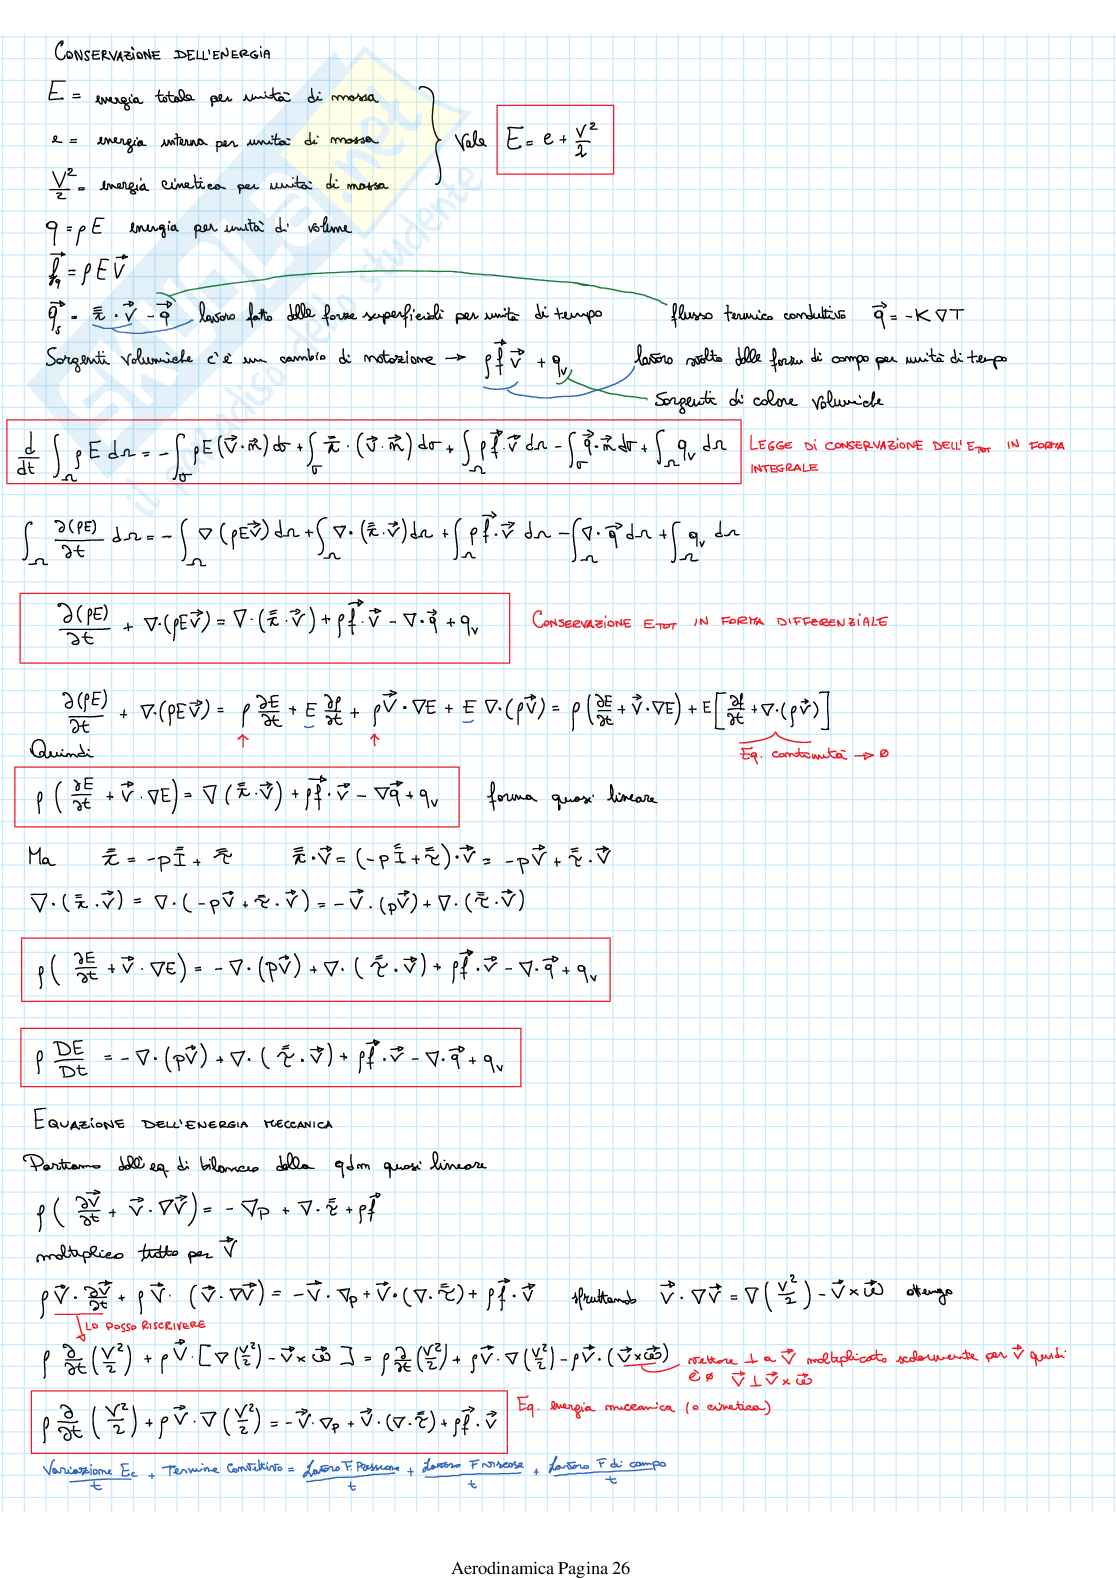 CONSERVAZIONE DELL'ENERGIA
E = energia totale per unità di massa
e = energia interna per unità di massa
V²/2 = energia cinetica per unità di massa
Vale E = e + V²/2
q = ρE energia per unità di volume
f⃗_q = ρEV⃗
q⃗_s = π̿·V⃗ - q⃗ lavoro fatto dalle forze superficiali per unità di tempo flusso termico conduttivo q⃗ = -K∇T
Sorgenti volumiche c'è un cambio di notazione → ρf⃗V⃗ + q_v lavoro svolto dalle forze di campo per unità di tempo
Sorgenti di calore volumiche
d/dt ∫_Ω ρE dΩ = -∫_σ ρE(V⃗·n⃗)dσ + ∫_σ π̿·(V⃗·n⃗)dσ + ∫_Ω ρf⃗·V⃗ dΩ - ∫_σ q⃗·n⃗ dσ + ∫_Ω q_v dΩ LEGGE DI CONSERVAZIONE DELL'E_TOT IN FORMA
INTEGRALE
∫_Ω ∂(ρE)/∂t dΩ = -∫_Ω ∇(ρEV⃗)dΩ + ∫_Ω ∇·(π̿·V⃗)dΩ + ∫_Ω ρf⃗·V⃗ dΩ - ∫_Ω ∇·q⃗ dΩ + ∫_Ω q_v dΩ
∂(ρE)/∂t + ∇·(ρEV⃗) = ∇·(π̿·V⃗) + ρf⃗·V⃗ - ∇·q⃗ + q_v CONSERVAZIONE E_TOT IN FORMA DIFFERENZIALE
∂(ρE)/∂t + ∇·(ρEV⃗) = ρ ∂E/∂t + E ∂ρ/∂t + ρV⃗·∇E + E ∇·(ρV⃗) = ρ(∂E/∂t + V⃗·∇E) + E[∂ρ/∂t + ∇·(ρV⃗)]
Quindi
Eq. continuità → 0
ρ(∂E/∂t + V⃗·∇E) = ∇(π̿·V⃗) + ρf⃗·V⃗ - ∇q⃗ + q_v forma quasi lineare
Ma π̿ = -pI̿ + τ̿ π̿·V⃗ = (-pI̿ + τ̿)·V⃗ = -pV⃗ + τ̿·V⃗
∇·(π̿·V⃗) = ∇·(-pV⃗ + τ̿·V⃗) = -V⃗·(pV⃗) + ∇·(τ̿·V⃗)
ρ(∂E/∂t + V⃗·∇E) = -∇·(pV⃗) + ∇·(τ̿·V⃗) + ρf⃗·V⃗ - ∇·q⃗ + q_v
ρ DE/Dt = -∇·(pV⃗) + ∇·(τ̿·V⃗) + ρf⃗·V⃗ - ∇·q⃗ + q_v
EQUAZIONE DELL'ENERGIA MECCANICA
Partiamo dall'eq di bilancio della qdm quasi lineare
ρ(∂V⃗/∂t + V⃗·∇V⃗) = -∇p + ∇·τ̿ + ρf⃗
moltiplico tutto per V⃗
ρV⃗·∂V⃗/∂t + ρV⃗·(V⃗·∇V⃗) = -V⃗·∇p + V⃗·(∇·τ̿) + ρf⃗·V⃗ sfruttando V⃗·∇V⃗ = ∇(V²/2) - V⃗×ω⃗ ottengo
LO POSSO RISCRIVERE
ρ ∂/∂t(V²/2) + ρV⃗·[∇(V²/2) - V⃗×ω⃗] = ρ ∂/∂t(V²/2) + ρV⃗·∇(V²/2) - ρV⃗·(V⃗×ω⃗) vettore ⊥ a V⃗ moltiplicato scalarmente per V⃗ quindi
è 0 V⃗ ⊥ V⃗×ω⃗
ρ ∂/∂t(V²/2) + ρV⃗·∇(V²/2) = -V⃗·∇p + V⃗·(∇·τ̿) + ρf⃗·V⃗ Eq. energia meccanica (o cinetica)
Variazione Ec/t + Termine Convettivo = Lavoro F. Pressione/t + Lavoro F viscose/t + Lavoro F di campo/t
Aerodinamica Pagina 26
SKUOLA.net
il paradiso dello studente